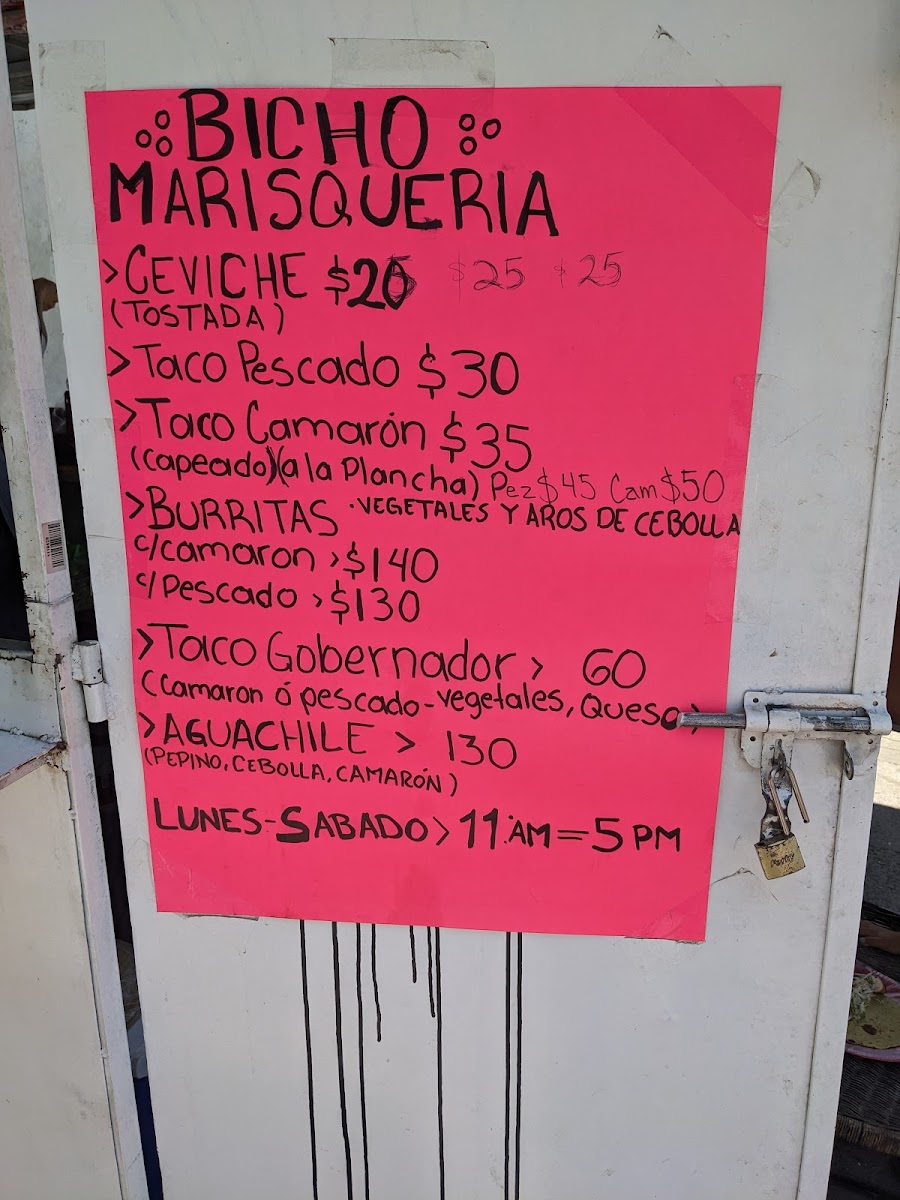 BICHO
MARISQUERIA
>CEVICHE $25 $25 $25
(TOSTADA)
>Taco Pescado $30
>Taco Camarón $35
(Capeado)(a la Plancha) Pez$45 Cam$50
>BURRITAS ·VEGETALES Y AROS DE CEBOLLA
c/camaron >$140
c/Pescado >$130
>Taco Gobernador> 60
(Camaron ó pescado-vegetales, Queso)
>AGUACHILE > 130
(PEPINO, CEBOLLA, CAMARÓN)
LUNES-SABADO> 11:AM=5PM